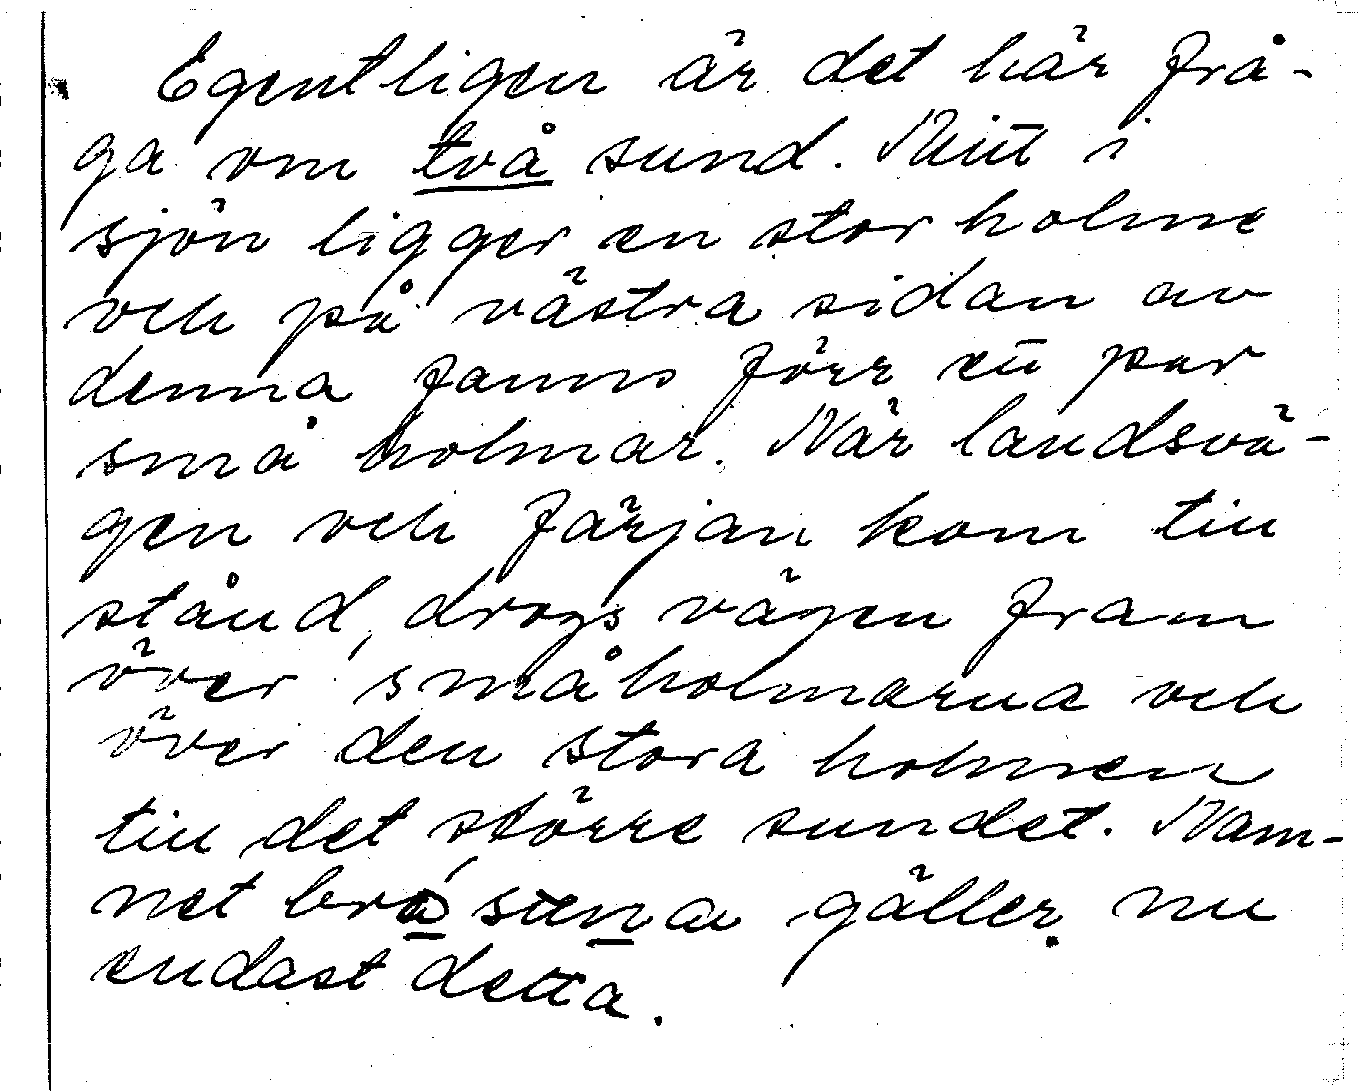 Egentligen är det här frå-
ga om två sund. Mitt i
sjön ligger en stor holme
och på västra sidan av
denna fanns förr ett par
små holmar. När landsvä-
gen och färjan kom till
stånd, drogs vägen fram
över småholmarna och
över den stora holmen
till det större sundet. Nam-
net gäller nu
endast detta.